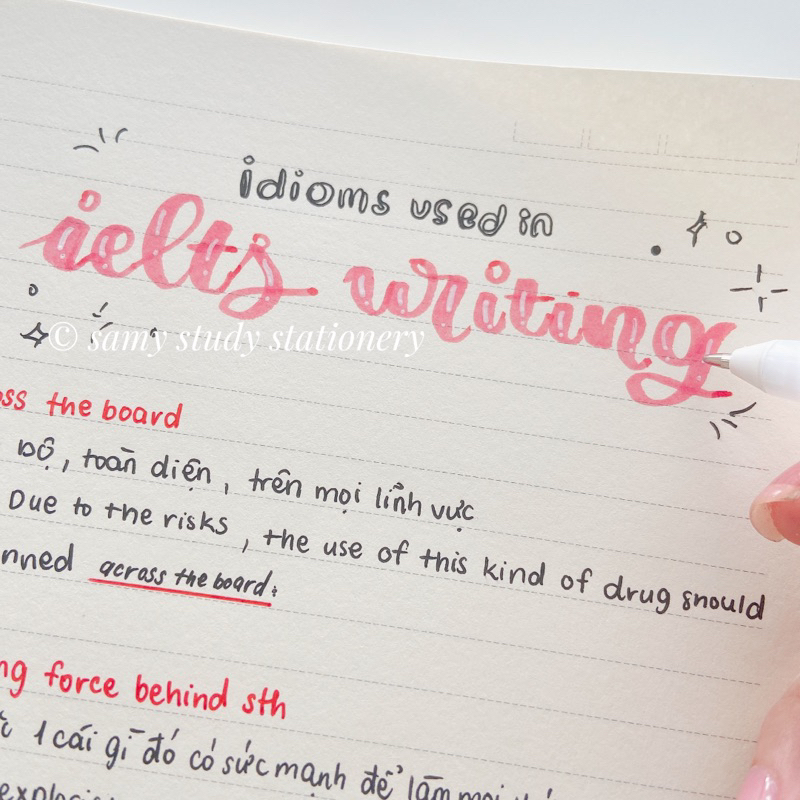 idioms used in
ielts writing
© samy study stationery
the board
bộ, toàn diện, trên mọi lĩnh vực
Due to the risks, the use of this kind of drug should
across the board.
force behind sth
1 cái gì đó có sức mạnh để làm mọi